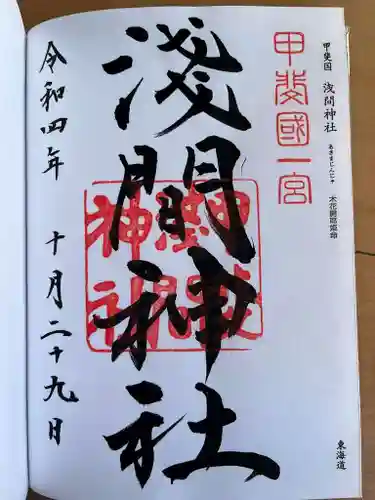 甲斐国 浅間神社
あさまじんじゃ
木花開耶姫命
東海道
甲斐國一宮
淺間神社
淺間神社
令和四年 十月二十九日